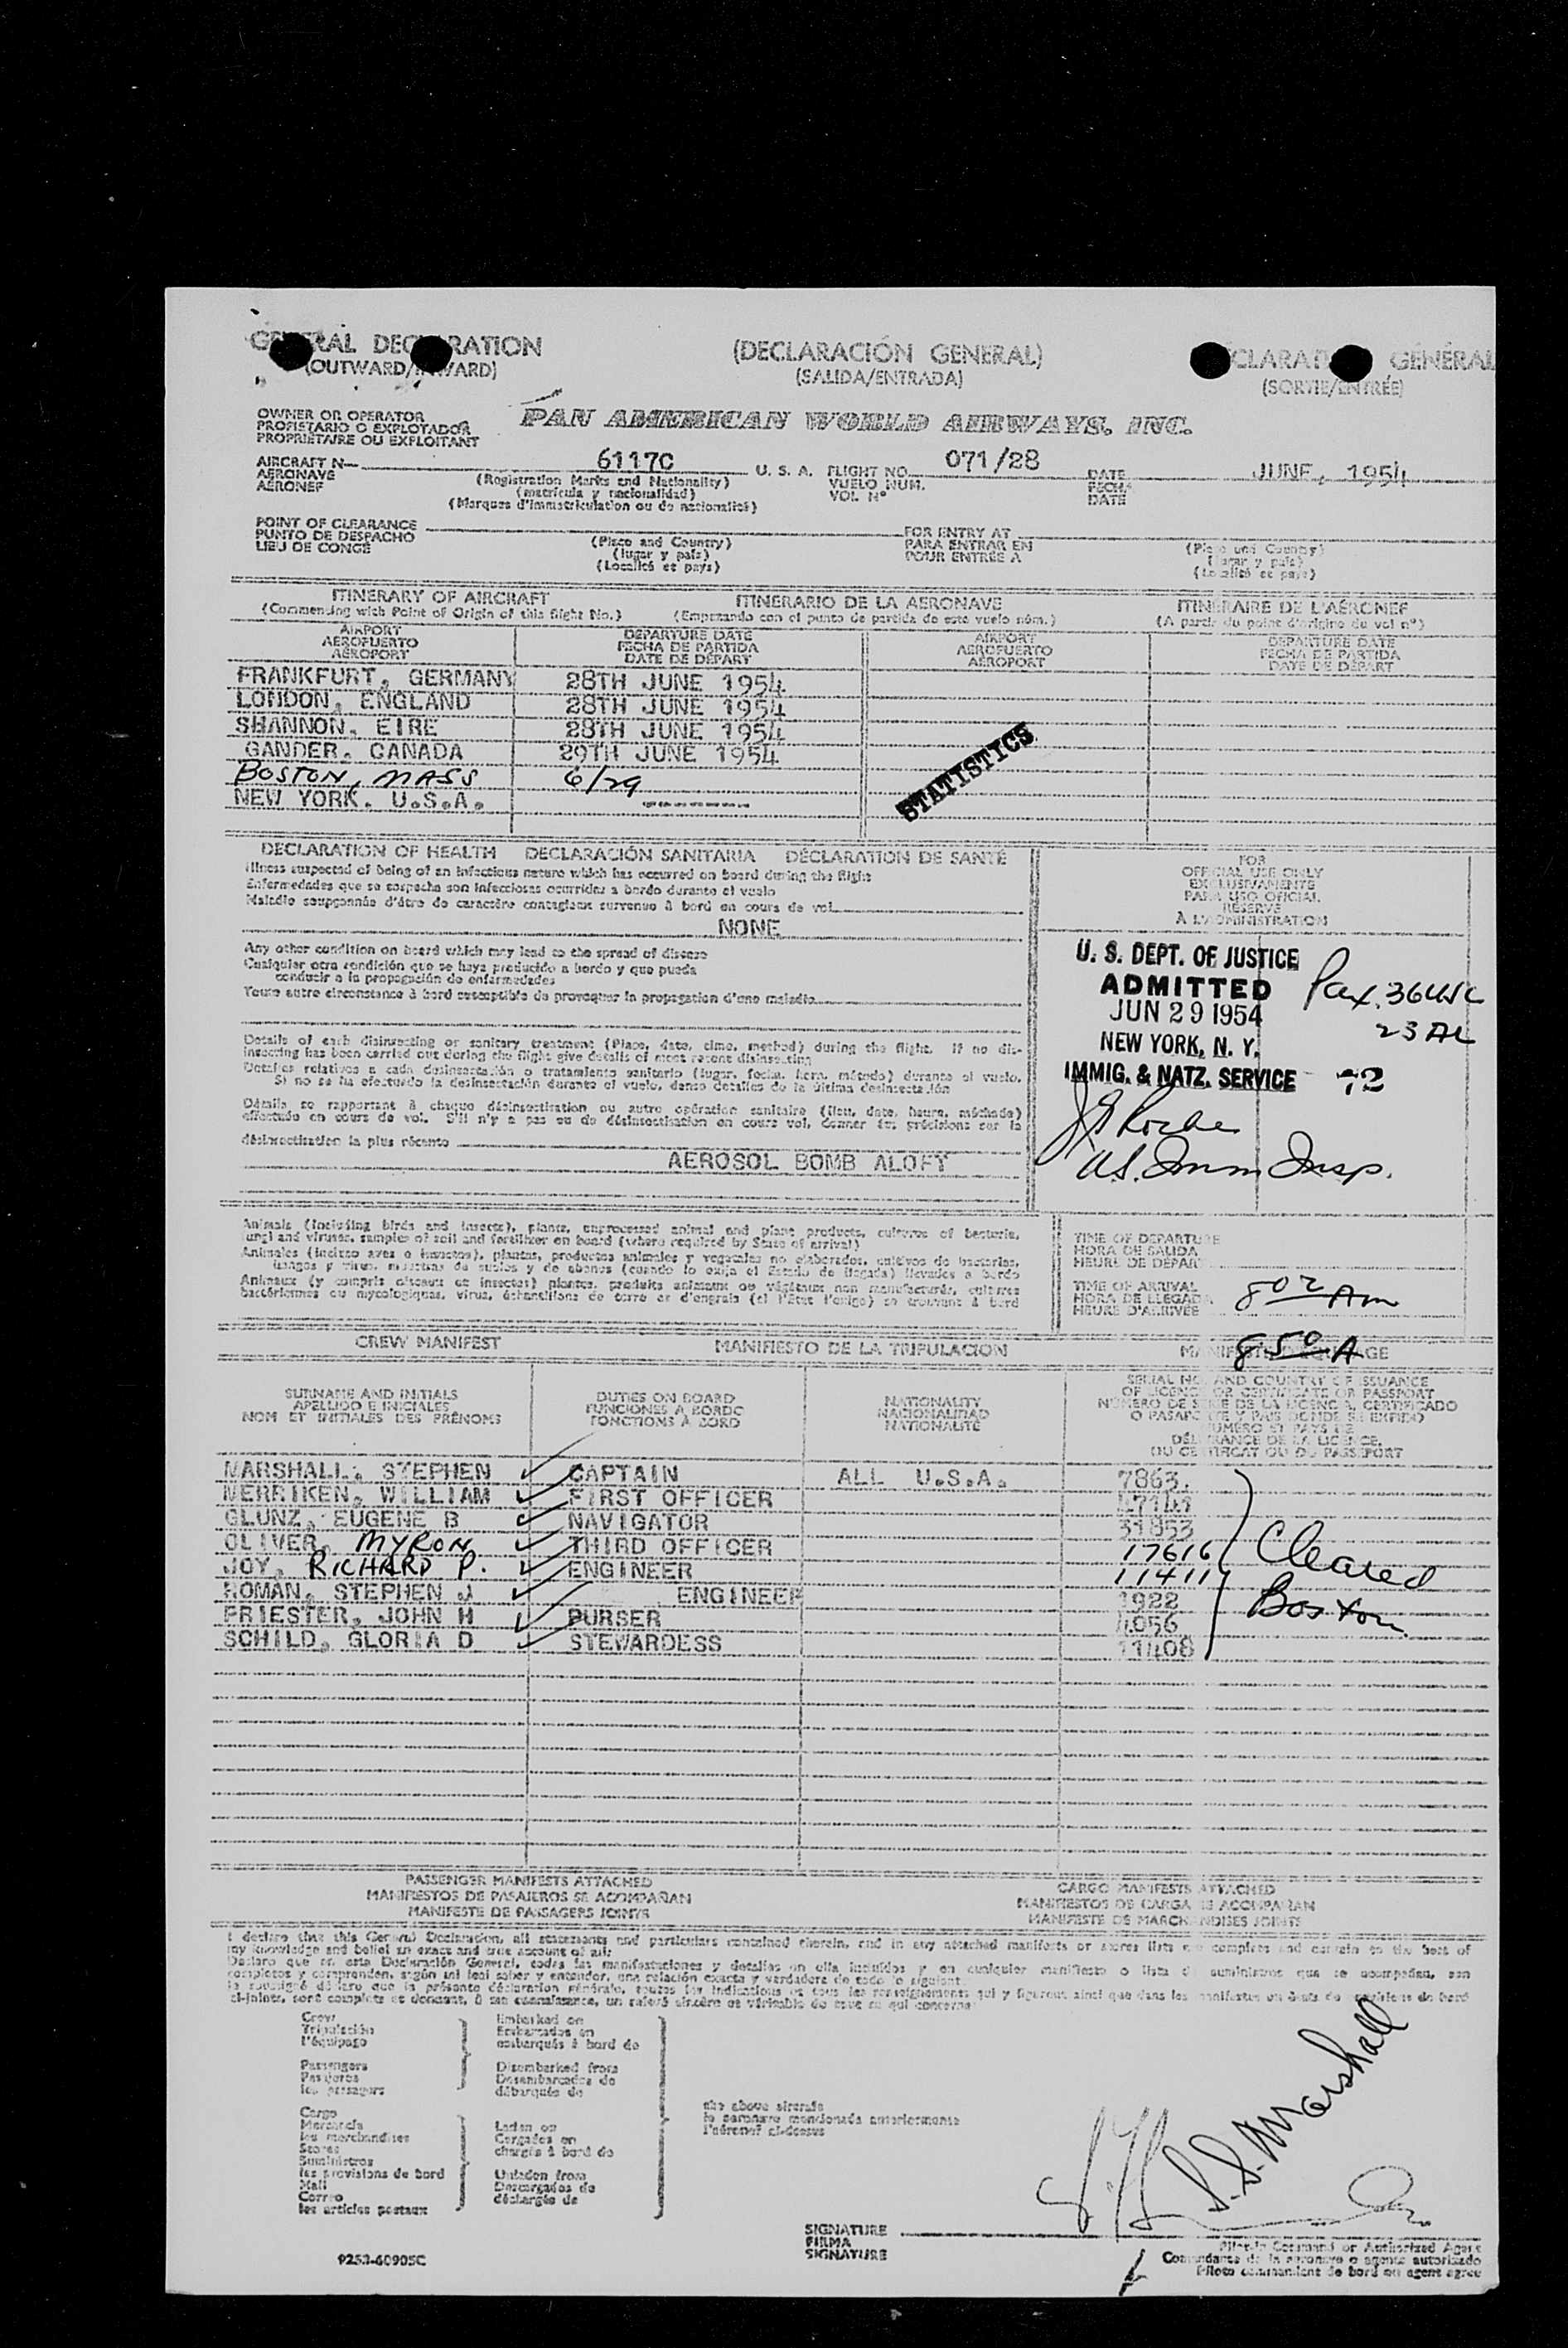 GENERAL DECLARATION (DECLARACIÓN GENERAL) GÉNÉRAL
(OUTWARD/INWARD) (SALIDA/ENTRADA) (SORTIE/ENTRÉE)
OWNER OR OPERATOR
PROPIETARIO O EXPLOTADOR
PROPRIÉTAIRE OU EXPLOITANT
PAN AMERICAN WORLD AIRWAYS, INC.
AIRCRAFT N— 6117C U. S. A. FLIGHT NO. 071/28 DATE JUNE, 1954
AERONAVE (Registration Marks and Nationality) VUELO NUM. FECHA
AÉRONEF (matrícula y nacionalidad) VOL Nº DATE
(Marques d'immatriculation ou de nationalité)
POINT OF CLEARANCE FOR ENTRY AT
PUNTO DE DESPACHO (Place and Country) PARA ENTRAR EN (Place and Country)
LIEU DE CONGÉ (lugar y país) POUR ENTRÉE A (lugar y país)
(Localité et pays) (Localité et pays)
ITINERARY OF AIRCRAFT ITINERARIO DE LA AERONAVE ITINÉRAIRE DE L'AÉRONEF
(Commencing with Point of Origin of this flight No.) (Empezando con el punto de partida de este vuelo núm.) (A partir du point d'origine du vol nº)
AIRPORT DEPARTURE DATE AIRPORT DEPARTURE DATE
AEROPUERTO FECHA DE PARTIDA AEROPUERTO FECHA DE PARTIDA
AÉROPORT DATE DE DÉPART AÉROPORT DATE DE DÉPART
FRANKFURT, GERMANY 28TH JUNE 1954
LONDON, ENGLAND 28TH JUNE 1954
SHANNON, EIRE 28TH JUNE 1954
GANDER, CANADA 29TH JUNE 1954
BOSTON, MASS 6/29
NEW YORK. U.S.A.
STATISTICS
DECLARATION OF HEALTH DECLARACIÓN SANITARIA DÉCLARATION DE SANTÉ
Illness suspected of being of an infectious nature which has occurred on board during the flight
Enfermedades que se sospecha son infecciosas ocurridas a bordo durante el vuelo
Maladie soupçonnée d'être de caractère contagieux survenue à bord en cours de vol
NONE
Any other condition on board which may lead to the spread of disease
Cualquier otra condición que se haya producido a bordo y que pueda
conducir a la propagación de enfermedades
Toute autre circonstance à bord susceptible de provoquer la propagation d'une maladie
Details of each disinsecting or sanitary treatment (Place, date, time, method) during the flight. If no dis-
insecting has been carried out during the flight give details of most recent disinsecting
Detalles relativos a cada desinsectación o tratamiento sanitario (lugar, fecha, hora, método) durante el vuelo.
Si no se ha efectuado la desinsectación durante el vuelo, danse detalles de la última desinsectación
Détails se rapportant à chaque désinsectisation ou autre opération sanitaire (lieu, date, heure, méthode)
effectuée en cours de vol. S'il n'y a pas eu de désinsectisation en cours vol, donner des précisions sur la
désinsectisation la plus récente
AEROSOL BOMB ALOFT
FOR
OFFICIAL USE ONLY
EXCLUSIVAMENTE
PARA USO OFICIAL
RÉSERVÉ
À L'ADMINISTRATION
U. S. DEPT. OF JUSTICE
ADMITTED
JUN 29 1954
NEW YORK, N. Y.
IMMIG. & NATZ. SERVICE 72
Pax. 36 USC
23 AL
U.S. Imm Insp.
Animals (including birds and insects), plants, unprocessed animal and plant products, cultures of bacteria,
fungi and viruses, samples of soil and fertilizer on board (where required by State of arrival)
Animales (incluso aves e insectos), plantas, productos animales y vegetales no elaborados, cultivos de bacterias,
hongos y virus, muestras de suelos y de abonos (cuando lo exija el Estado de llegada) llevados a bordo
Animaux (y compris oiseaux et insectes) plantes, produits animaux ou végétaux non manufacturés, cultures
bactériennes ou mycologiques, virus, échantillons de terre et d'engrais (si l'État l'exige) se trouvant à bord
TIME OF DEPARTURE
HORA DE SALIDA
HEURE DE DÉPART
TIME OF ARRIVAL
HORA DE LLEGADA 8 02 Am
HEURE D'ARRIVÉE
8 50 A
CREW MANIFEST MANIFIESTO DE LA TRIPULACION
SURNAME AND INITIALS DUTIES ON BOARD NATIONALITY SERIAL NO. AND COUNTRY OF ISSUANCE
APELLIDO E INICIALES FUNCIONES A BORDO NACIONALIDAD OF LICENCE OR CERTIFICATE OR PASSPORT
NOM ET INITIALES DES PRÉNOMS FONCTIONS À BORD NATIONALITÉ NÚMERO DE SERIE DE LA LICENCIA, CERTIFICADO
O PASAPORTE Y PAIS DONDE SE EXPIDIO
NUMÉRO ET PAYS DE
DÉLIVRANCE DE LA LICENCE,
DU CERTIFICAT OU DU PASSEPORT
MARSHALL, STEPHEN CAPTAIN ALL U.S.A. 7863.
MERRIKEN, WILLIAM FIRST OFFICER
GLUNZ, EUGENE B NAVIGATOR 31853
OLIVER, MYRON THIRD OFFICER 17616
JOY, RICHARD P. ENGINEER 11411
ROMAN, STEPHEN J ENGINEER 1922
PRIESTER, JOHN H PURSER 4056
SCHILD, GLORIA D STEWARDESS 11408
Cleared
Boston
PASSENGER MANIFESTS ATTACHED CARGO MANIFESTS ATTACHED
MANIFIESTOS DE PASAJEROS SE ACOMPAÑAN MANIFIESTOS DE CARGA SE ACOMPAÑAN
MANIFESTE DE PASSAGERS JOINTS MANIFESTE DE MARCHANDISES JOINTS
I declare that this General Declaration, all statements and particulars contained therein, and in any attached manifests or stores lists are complete and certain to the best of
my knowledge and belief an exact and true account of all:
Declaro que en esta Declaración General, todas las manifestaciones y detalles en ella incluidos y en cualquier manifiesto o lista de suministros que se acompañan, son
completos y comprenden, según mi leal saber y entender, una relación exacta y verdadera de todo lo siguiente
Crew Embarked on
Tripulación Embarcados en
l'équipage embarqués à bord de
Passengers Disembarked from
Pasajeros Desembarcados de
les passagers débarqués de
Cargo
Mercancía Laden on
les marchandises Cargados en
Stores chargés à bord de
Suministros
les provisions de bord Unladen from
Mail Descargados de
Correo déchargés de
les articles postaux
the above aircraft
la aeronave mencionada anteriormente
l'aéronef ci-dessus
S. S. Marshall
SIGNATURE
FIRMA
SIGNATURE
Pilot-in Command or Authorized Agent
Comandante de la aeronave o agente autorizado
Pilote commandant de bord ou agent agréé
9253-60905C